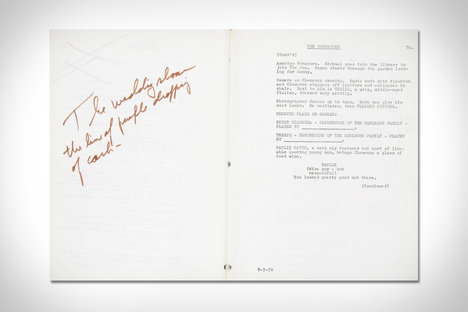 The wedding
the line of people dropping
of cash—
THE GODFATHER
(Cont'd)
Michael goes into the library to
join The Don. Hagen starts through the garden look-
ing for Sonny.
Camera on Clemenza dancing. Music ends with flourish
and Clemenza staggers off platform and collapses in
chair. Next to him is TESSIO, a wiry, middle-aged
Italian, dressed very nattily.
Photographer dances up to them. Both men give him
looks. He hesitates, then FLASHES PICTURE.
CREDITS FLASH ON SCREEN:
PETER CLEMENZA - CAPOREGIME OF THE CORLEONE FAMILY -
PLAYED BY
TESSIO - CAPOREGIME OF THE CORLEONE FAMILY - PLAYED
BY
PAULIE GATTO, a very big featured but sort of lik-
able looking young man, brings Clemenza a glass of
iced wine.
PAULIE
(Wise guy - but
respectful)
You looked pretty good out there.
(Continued)
8-3-70